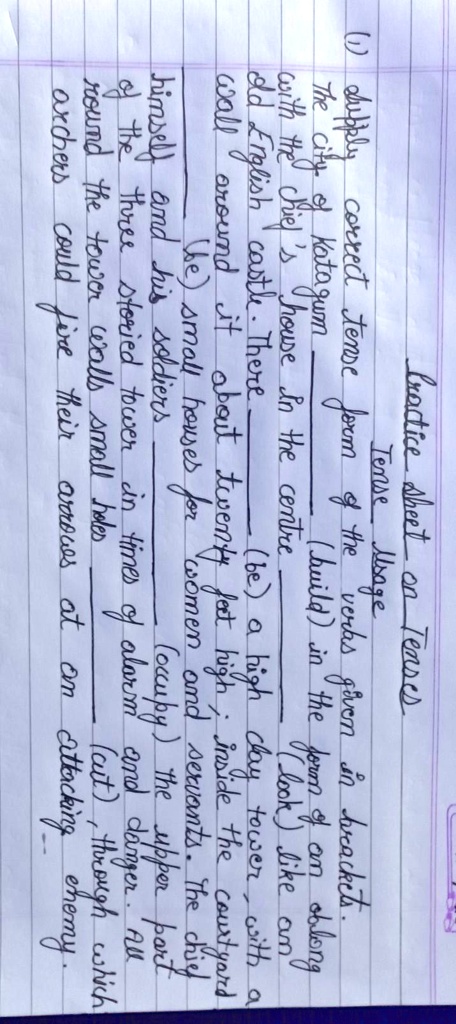 Practice Sheet on Tenses
Tense Usage
(i) Supply correct tense form of the verbs given in brackets.
The city of Katagum ________ (build) in the form of an oblong
with the chief's house in the centre ________ (look) like an
old English castle. There ________ (be) a high clay tower, with a
wall around it about twenty feet high; inside the courtyard
________ (be) small houses for women and servants. The chief
himself and his soldiers ________ (occupy) the upper part
of the three storied tower in times of alarm and danger. All
round the tower walls small holes ________ (cut), through which
archers could fire their arrows at an attacking enemy.